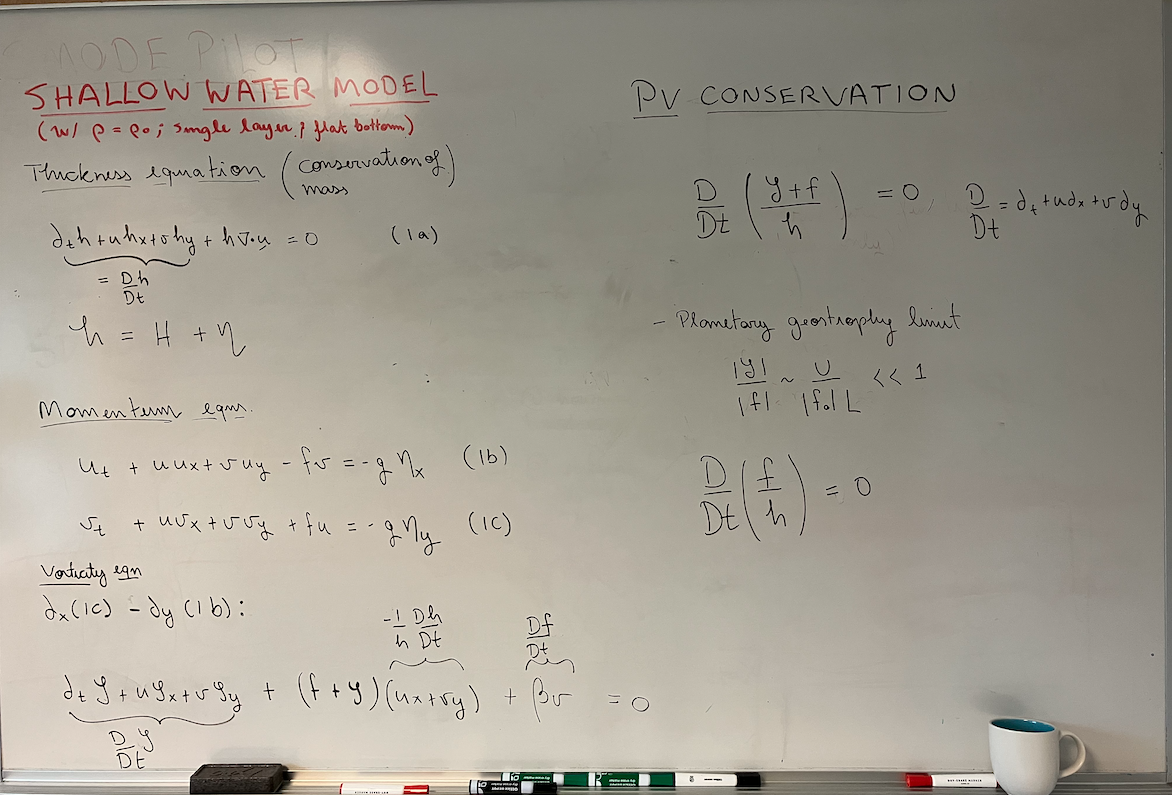 MODE PILOT
SHALLOW WATER MODEL
(w/ ρ = ρ₀; single layer; flat bottom)
Thickness equation (conservation of mass)
∂ₜh + uhₓ + vh_y + h∇·u = 0 (1a)
= Dh/Dt
h = H + η
Momentum eqns.
uₜ + uuₓ + vu_y - fv = -gηₓ (1b)
vₜ + uvₓ + vv_y + fu = -gη_y (1c)
Vorticity eqn
∂ₓ(1c) - ∂_y(1b):
-1/h Dh/Dt Df/Dt
∂ₜζ + uζₓ + vζ_y + (f + ζ)(uₓ + v_y) + βv = 0
D/Dt ζ
PV CONSERVATION
D/Dt ((ζ + f)/h) = 0, D/Dt = ∂ₜ + u∂ₓ + v∂_y
- Planetary geostrophy limit
|ζ|/|f| ~ U/|f₀|L << 1
D/Dt (f/h) = 0